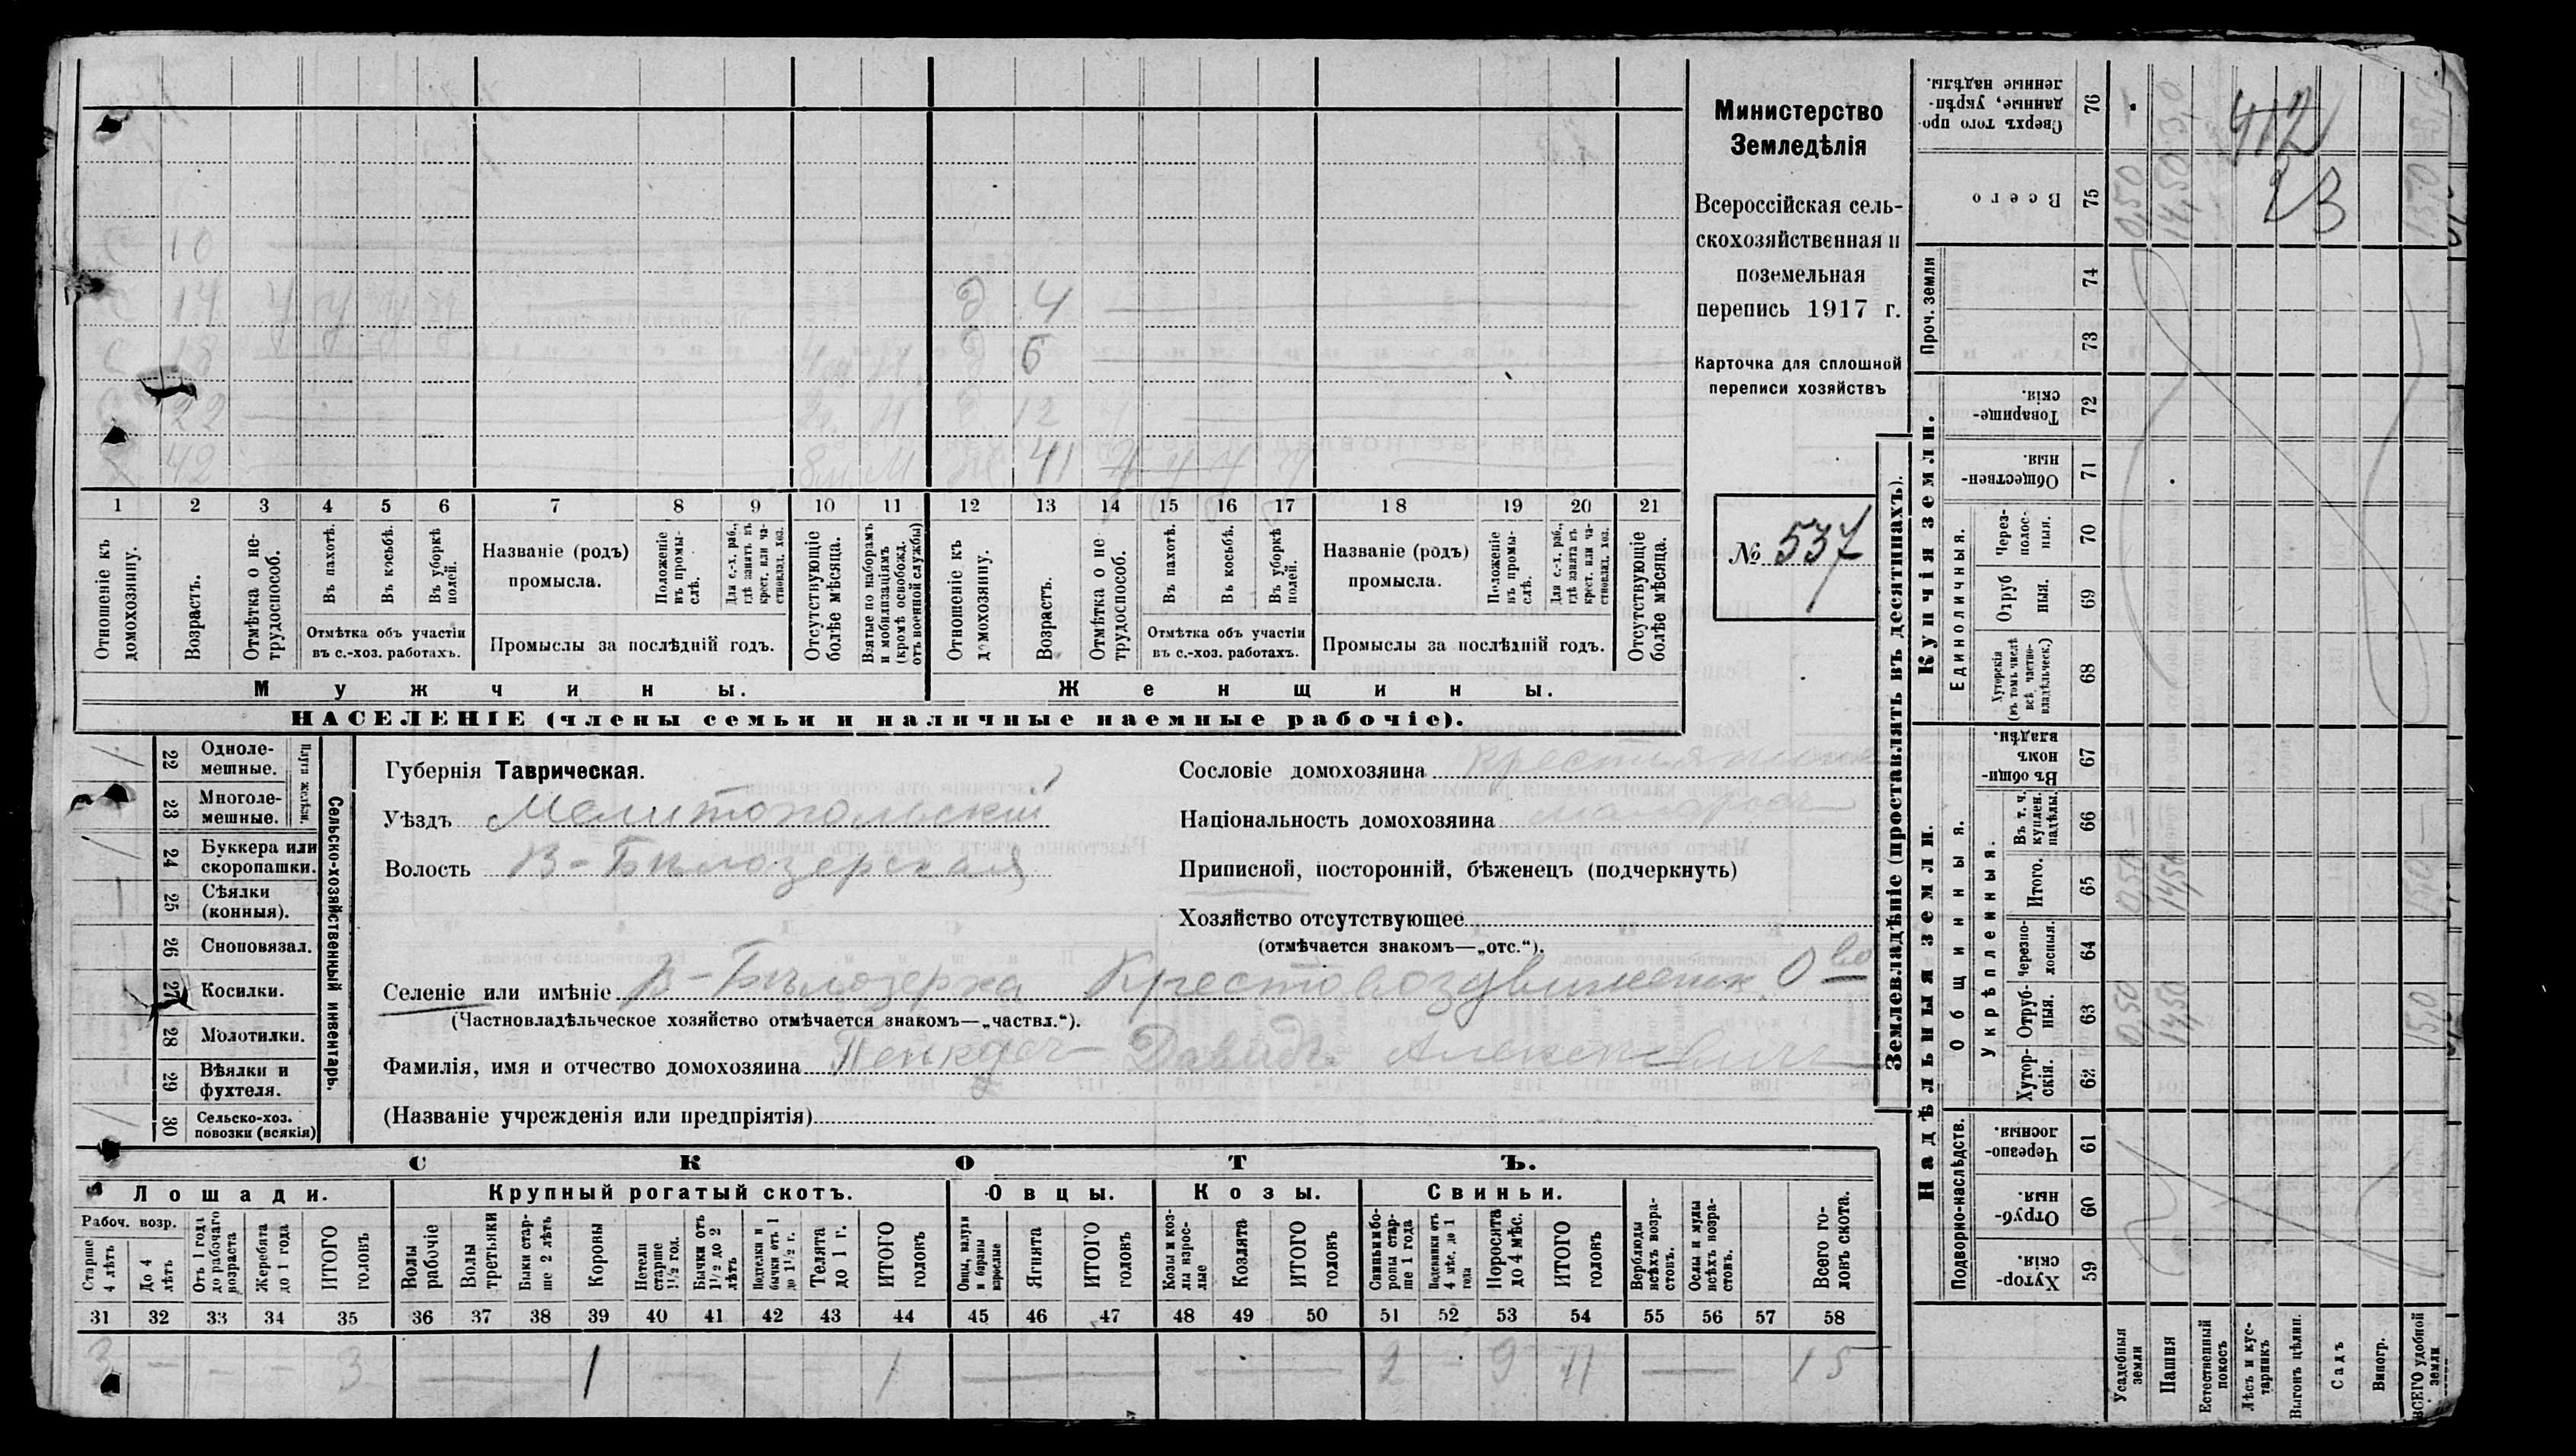 Министерство
Земледѣлія
Всероссійская сель-
скохозяйственная и
поземельная
перепись 1917 г.
Карточка для сплошной
переписи хозяйствъ
№ 537
10
14 У У У У
18
22
42 8 м. М
д 4
д 6
д 12
ж 41 У У У У
1 2 3 4 5 6 7 8 9 10 11 12 13 14 15 16 17 18 19 20 21
Отношеніе къ домохозяину.
Возрастъ.
Отмѣтка о не-трудоспособ.
Въ пахотѣ.
Въ косьбѣ.
Въ уборкѣ полей.
Отмѣтка объ участіи
въ с.-хоз. работахъ.
Названіе (родъ)
промысла.
Положеніе въ промы-слѣ.
Для с.-х. раб., гдѣ занятъ въ крест. или ча-стновлад. хоз.
Промыслы за послѣдній годъ.
Отсутствующіе болѣе мѣсяца.
Взятые по наборамъ и мобилизаціямъ (кромѣ освобожд. отъ военной службы)
Отношеніе къ домохозяину.
Возрастъ.
Отмѣтка о не трудоспособ.
Въ пахотѣ.
Въ косьбѣ.
Въ уборкѣ полей.
Отмѣтка объ участіи
въ с.-хоз. работахъ.
Названіе (родъ)
промысла.
Положеніе въ промы-слѣ.
Для с.-х. раб., гдѣ занята въ крест. или ча-стновлад. хоз.
Промыслы за послѣдній годъ.
Отсутствующіе болѣе мѣсяца.
Мужчины.
Женщины.
НАСЕЛЕНІЕ (члены семьи и наличные наемные рабочіе).
Сельско-хозяйственный инвентарь.
Плуги желѣзн.
22 Одноле-мешные.
23 Многоле-мешные.
24 Буккера или скоропашки.
25 Сѣялки (конныя).
26 Сноповязал.
27 Косилки.
28 Молотилки.
29 Вѣялки и фухтеля.
30 Сельско-хоз. повозки (всякія)
Губернія Таврическая.
Уѣздъ Мелитопольскій
Волость В-Бѣлозерская
Сословіе домохозяина крестьянинъ
Національность домохозяина малоросъ
Приписной, посторонній, бѣженецъ (подчеркнуть)
Хозяйство отсутствующее
(отмѣчается знакомъ—„отс.“).
Селеніе или имѣніе В-Бѣлозерка Крестовоздвиженск. О-во
(Частновладѣльческое хозяйство отмѣчается знакомъ—„частвл.“).
Фамилія, имя и отчество домохозяина Давидъ Алексѣевичъ
(Названіе учрежденія или предпріятія)
СКОТЪ.
Лошади. Крупный рогатый скотъ. Овцы. Козы. Свиньи.
Рабоч. возр.
Старше 4 лѣтъ
До 4 лѣтъ
Отъ 1 года до рабочаго возраста
Жеребята до 1 года
ИТОГО головъ
Волы рабочіе
Волы третьяки
Быки стар-ше 2 лѣтъ
Коровы
Нетели старше 1 1/2 год.
Бычки отъ 1 1/2 до 2 лѣтъ
Подтелки и бычки отъ 1 до 1 1/2 г.
Телята до 1 г.
ИТОГО головъ
Овцы, валухи и бараны взрослые
Ягнята
ИТОГО головъ
Козы и коз-лы взрос-лые
Козлята
ИТОГО головъ
Свиньи и бо-ровы стар-ше 1 года
Подсвинки отъ 4 мѣс. до 1 года
Поросята до 4 мѣс.
ИТОГО головъ
Верблюды всѣхъ возра-стовъ.
Ослы и мулы всѣхъ возра-стовъ.
Всего го-ловъ скота.
31 32 33 34 35 36 37 38 39 40 41 42 43 44 45 46 47 48 49 50 51 52 53 54 55 56 57 58
3 — — — 3 — 1 — — 1 — — — 2 - 9 11 — 15
Землевладѣніе (проставлять въ десятинахъ).
Купчія земли.
Надѣльныя земли.
Сверхъ того про-данные, укрѣп-ленные надѣлы. 76
Всего 75 0,50 14,50 15,0
412
23
Проч. земли 74 73
Товарище-скія. 72
Обществен-ныя. 71
Единоличныя.
Через-полос-ныя. 70
Отруб ныя. 69
Хуторскія (въ томъ числѣ всѣ частно-владѣльческ.) 68
Общинныя.
Въ общин-номъ владѣн. 67
Укрѣпленныя.
Въ т. ч. куплен. надѣлы. 66
Итого. 65 0,50 14,50 15,0
Черезпо-лосныя. 64
Отруб-ныя. 63 0,50 14,50 15,0
Хутор-скія. 62
Подворно-наслѣдств.
Черезпо-лосныя. 61
Отруб-ныя. 60
Хутор-скія. 59
Усадебныя земли
Пашня
Естественный покосъ
Лѣсъ и кус-тарникъ
Выгонъ цѣлин.
Садъ
Виногр.
ВСЕГО удобной земли